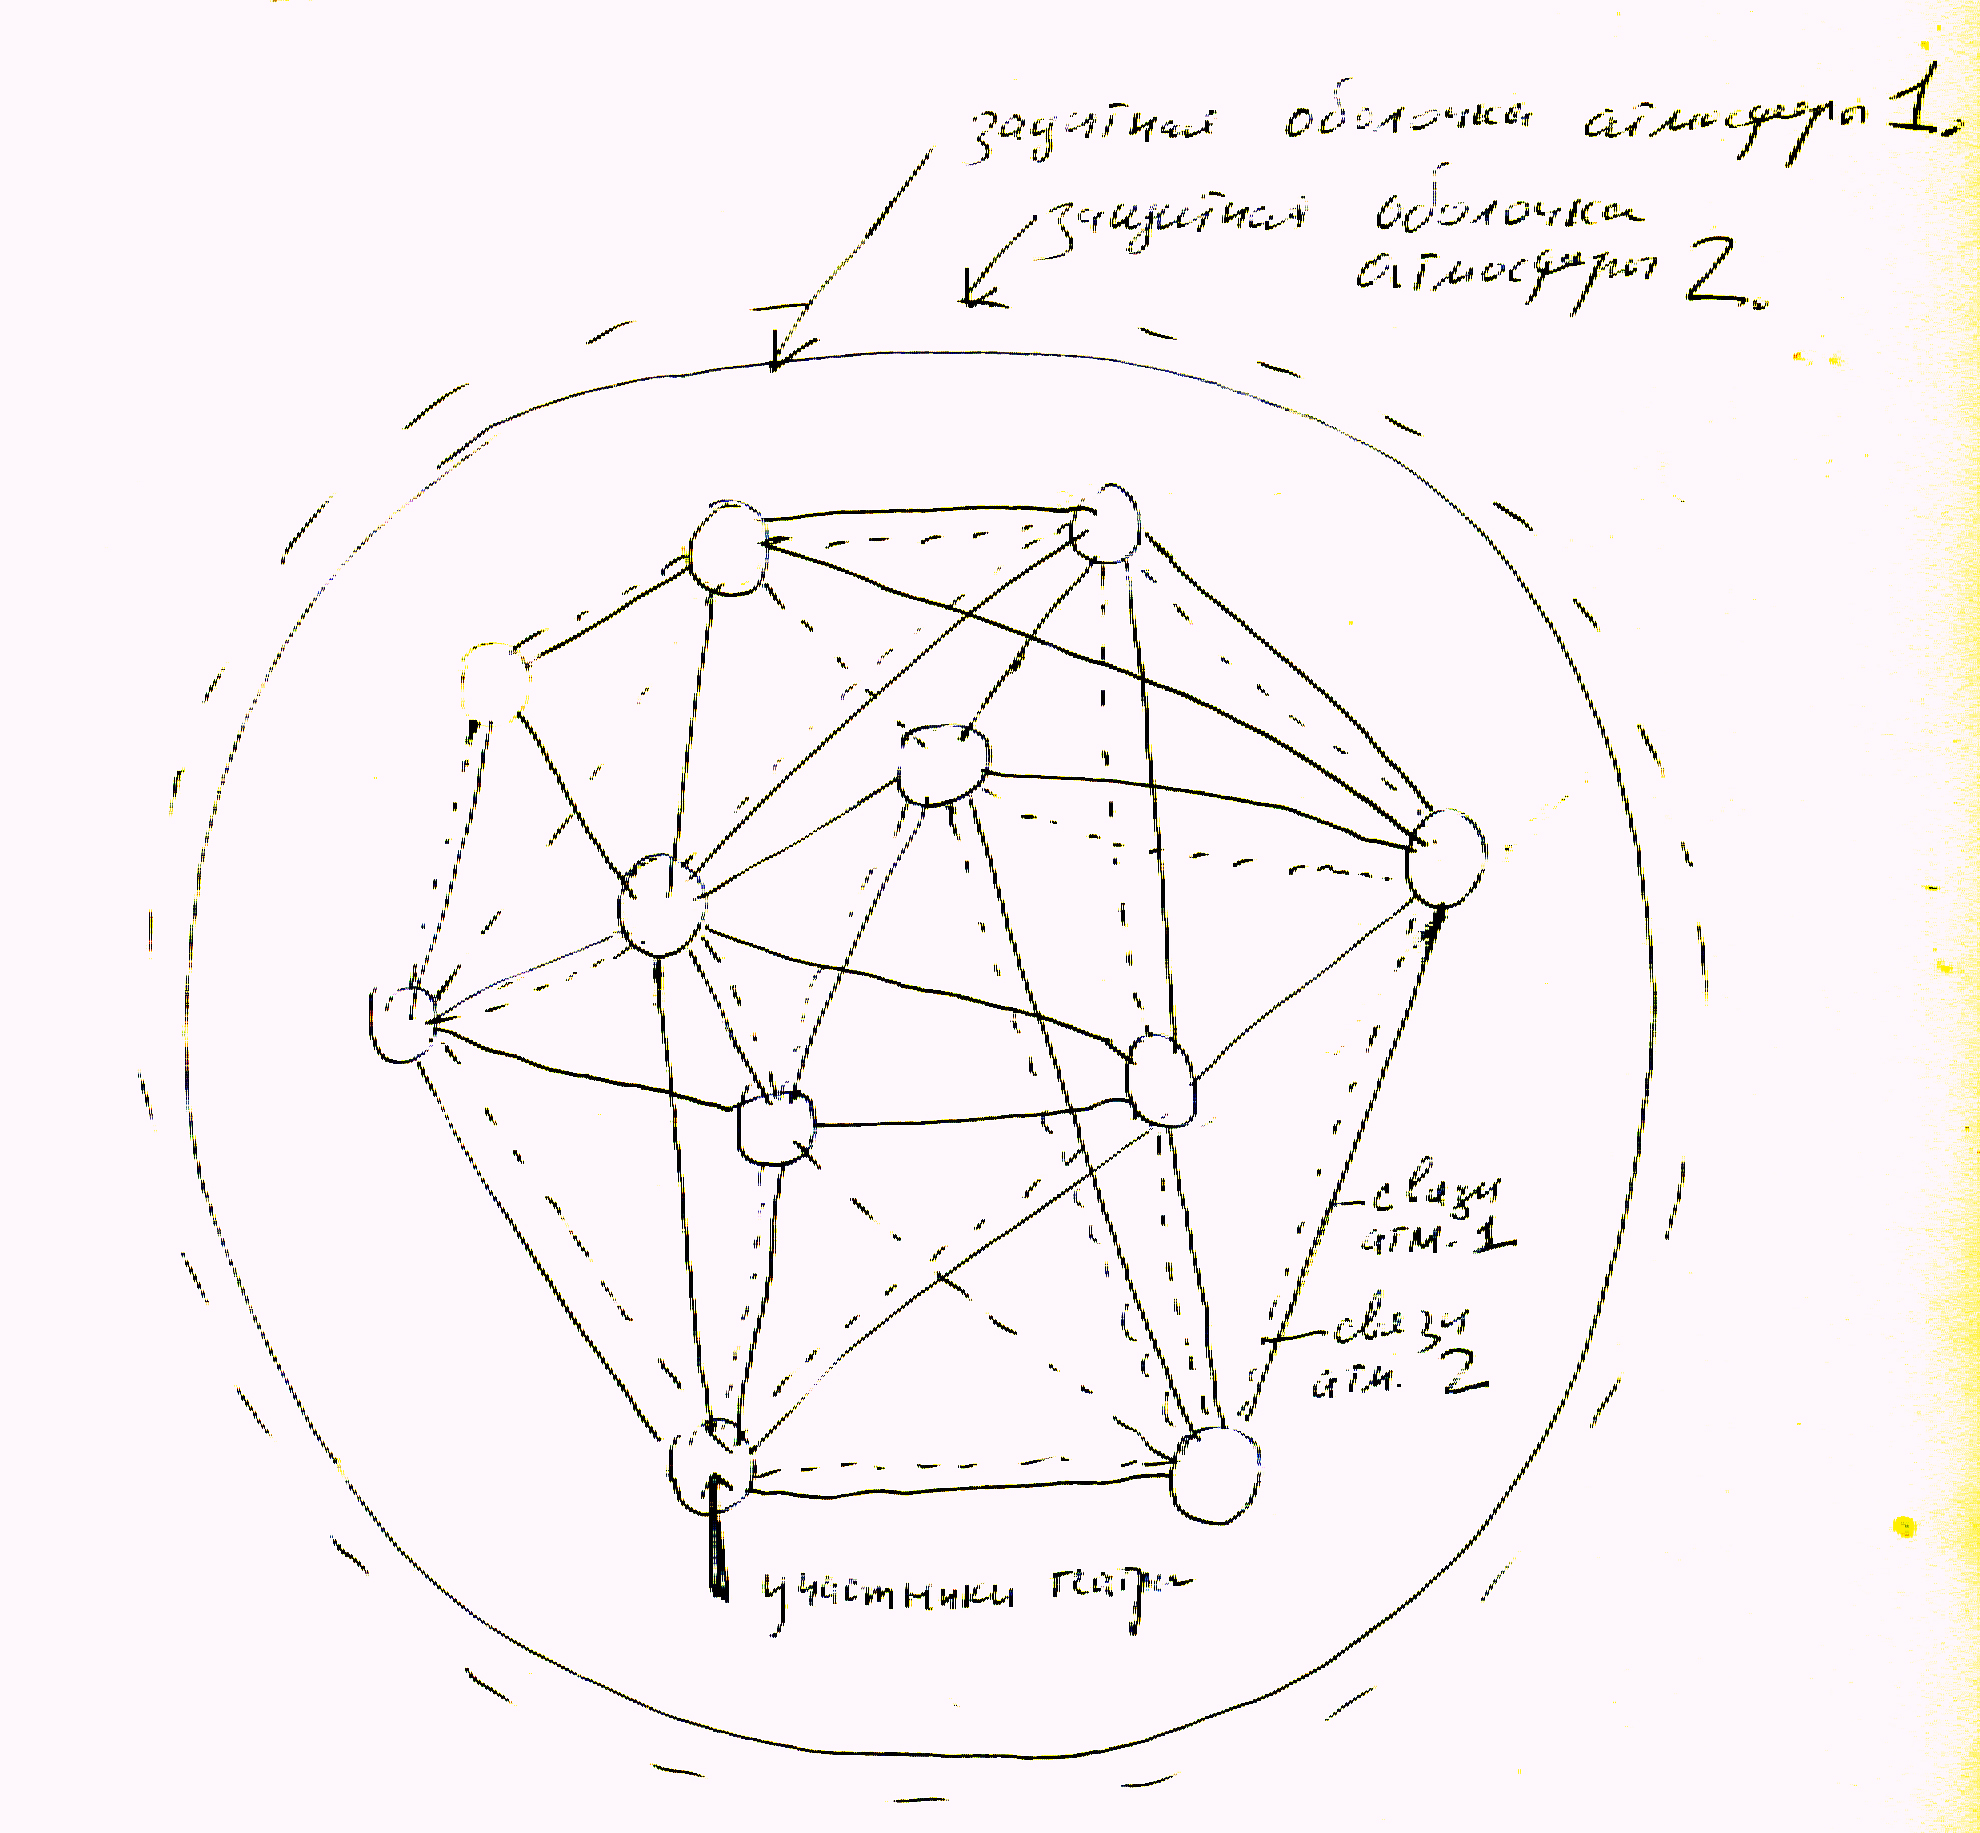 защитная оболочка атмосферы 1.
защитная оболочка
атмосферы 2.
связи
атм. 1
связи
атм. 2
участники театра